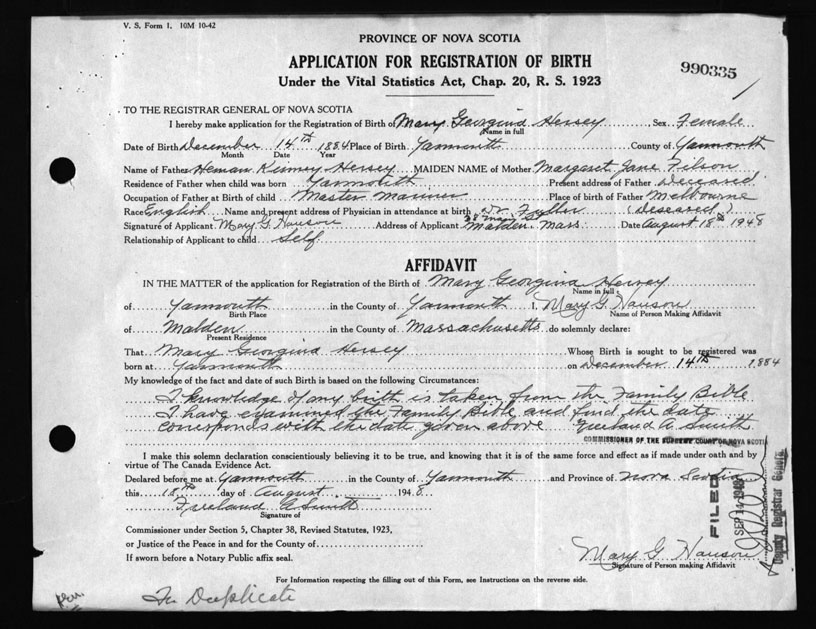 V. S. Form 1. 10M 10-42
PROVINCE OF NOVA SCOTIA
APPLICATION FOR REGISTRATION OF BIRTH
Under the Vital Statistics Act, Chap. 20, R. S. 1923
990335
TO THE REGISTRAR GENERAL OF NOVA SCOTIA
I hereby make application for the Registration of Birth of Mary Georgina Hersey Sex Female
Name in full
Date of Birth December 14th 1884 Place of Birth Yarmouth County of Yarmouth
Month Date Year
Name of Father Heman Kinney Hersey MAIDEN NAME of Mother Margaret Jane Filson
Residence of Father when child was born Yarmouth Present address of Father Deceased
Occupation of Father at Birth of child Master Mariner Place of birth of Father Melbourne
Race English Name and present address of Physician in attendance at birth Dr. Fuller (Deseased)
Signature of Applicant Mary G Hanson Address of Applicant Malden, Mass Date August 18th 1948
Relationship of Applicant to child Self
AFFIDAVIT
IN THE MATTER of the application for Registration of the Birth of Mary Georgina Hersey
Name in full
of Yarmouth in the County of Yarmouth I, Mary G Hanson
Birth Place Name of Person Making Affidavit
of Malden in the County of Massachusetts do solemnly declare:
Present Residence
That Mary Georgina Hersey Whose Birth is sought to be registered was
born at Yarmouth on December 14th 1884
My knowledge of the fact and date of such Birth is based on the following Circumstances:
I knowledge of my birth is taken from the Family Bible
I have examined the Family Bible and find the date
corresponds with the date given above Freeland A. Smith
COMMISSIONER OF THE SUPREME COURT OF NOVA SCOTIA
I make this solemn declaration conscientiously believing it to be true, and knowing that it is of the same force and effect as if made under oath and by
virtue of The Canada Evidence Act.
Declared before me at Yarmouth in the County of Yarmouth and Province of Nova Scotia
this 18th day of August 1948
Freeland A Smith
Signature of
Commissioner under Section 5, Chapter 38, Revised Statutes, 1923,
or Justice of the Peace in and for the County of
If sworn before a Notary Public affix seal.
FILED
SEP 14 1948
Deputy Registrar General
Mary G Hanson
Signature of Person making Affidavit
For Information respecting the filling out of this Form, see Instructions on the reverse side.
In Duplicate